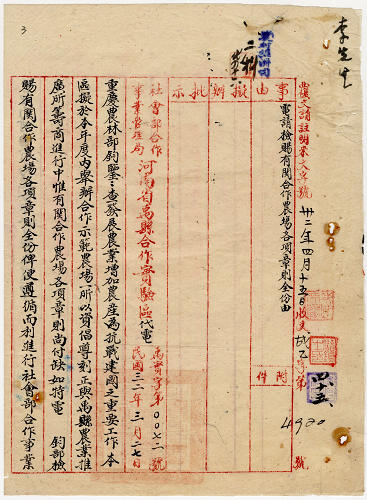 李先生
覆文請註明來文字號
卅二年四月十五日收文
字第
號
4920
事由
擬辦
批示
電請檢賜有関合作農場各項章則全份由
附件
社會部合作事業管理局
河南省禹縣合作實驗區代電
禹實字第〇〇七二號
民國三二年三月二七日
重慶農林部鈞鑒：查發展農業增加農產為抗戰建國之重要工作本
區擬於本年度內舉辦合作示範農場一所以資倡導刻正與禹縣農業推
廣所籌商進行中惟有関合作農場各項章則尚付缺如特電 鈞部檢
賜有関合作農場各項章則全份俾便遵循而利進行社會部合作事業
3